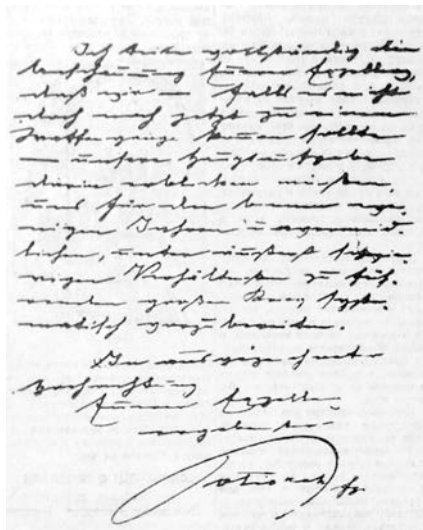 Ich teile vollständig die
Anschauung Euerer Exzellenz,
daß wir — falls es nicht
doch noch jetzt zu einem
Waffengange kommen sollte
— unsere Hauptaufgabe
darin erblicken müssen,
uns für den binnen we-
nigen Jahren unvermeid-
lichen, unter äußerst schwie-
rigen Verhältnissen zu füh-
renden großen Krieg syste-
matisch vorzubereiten.
In ausgezeichneter
Hochachtung
Euerer Exzellenz
ergebenster
Potiorek